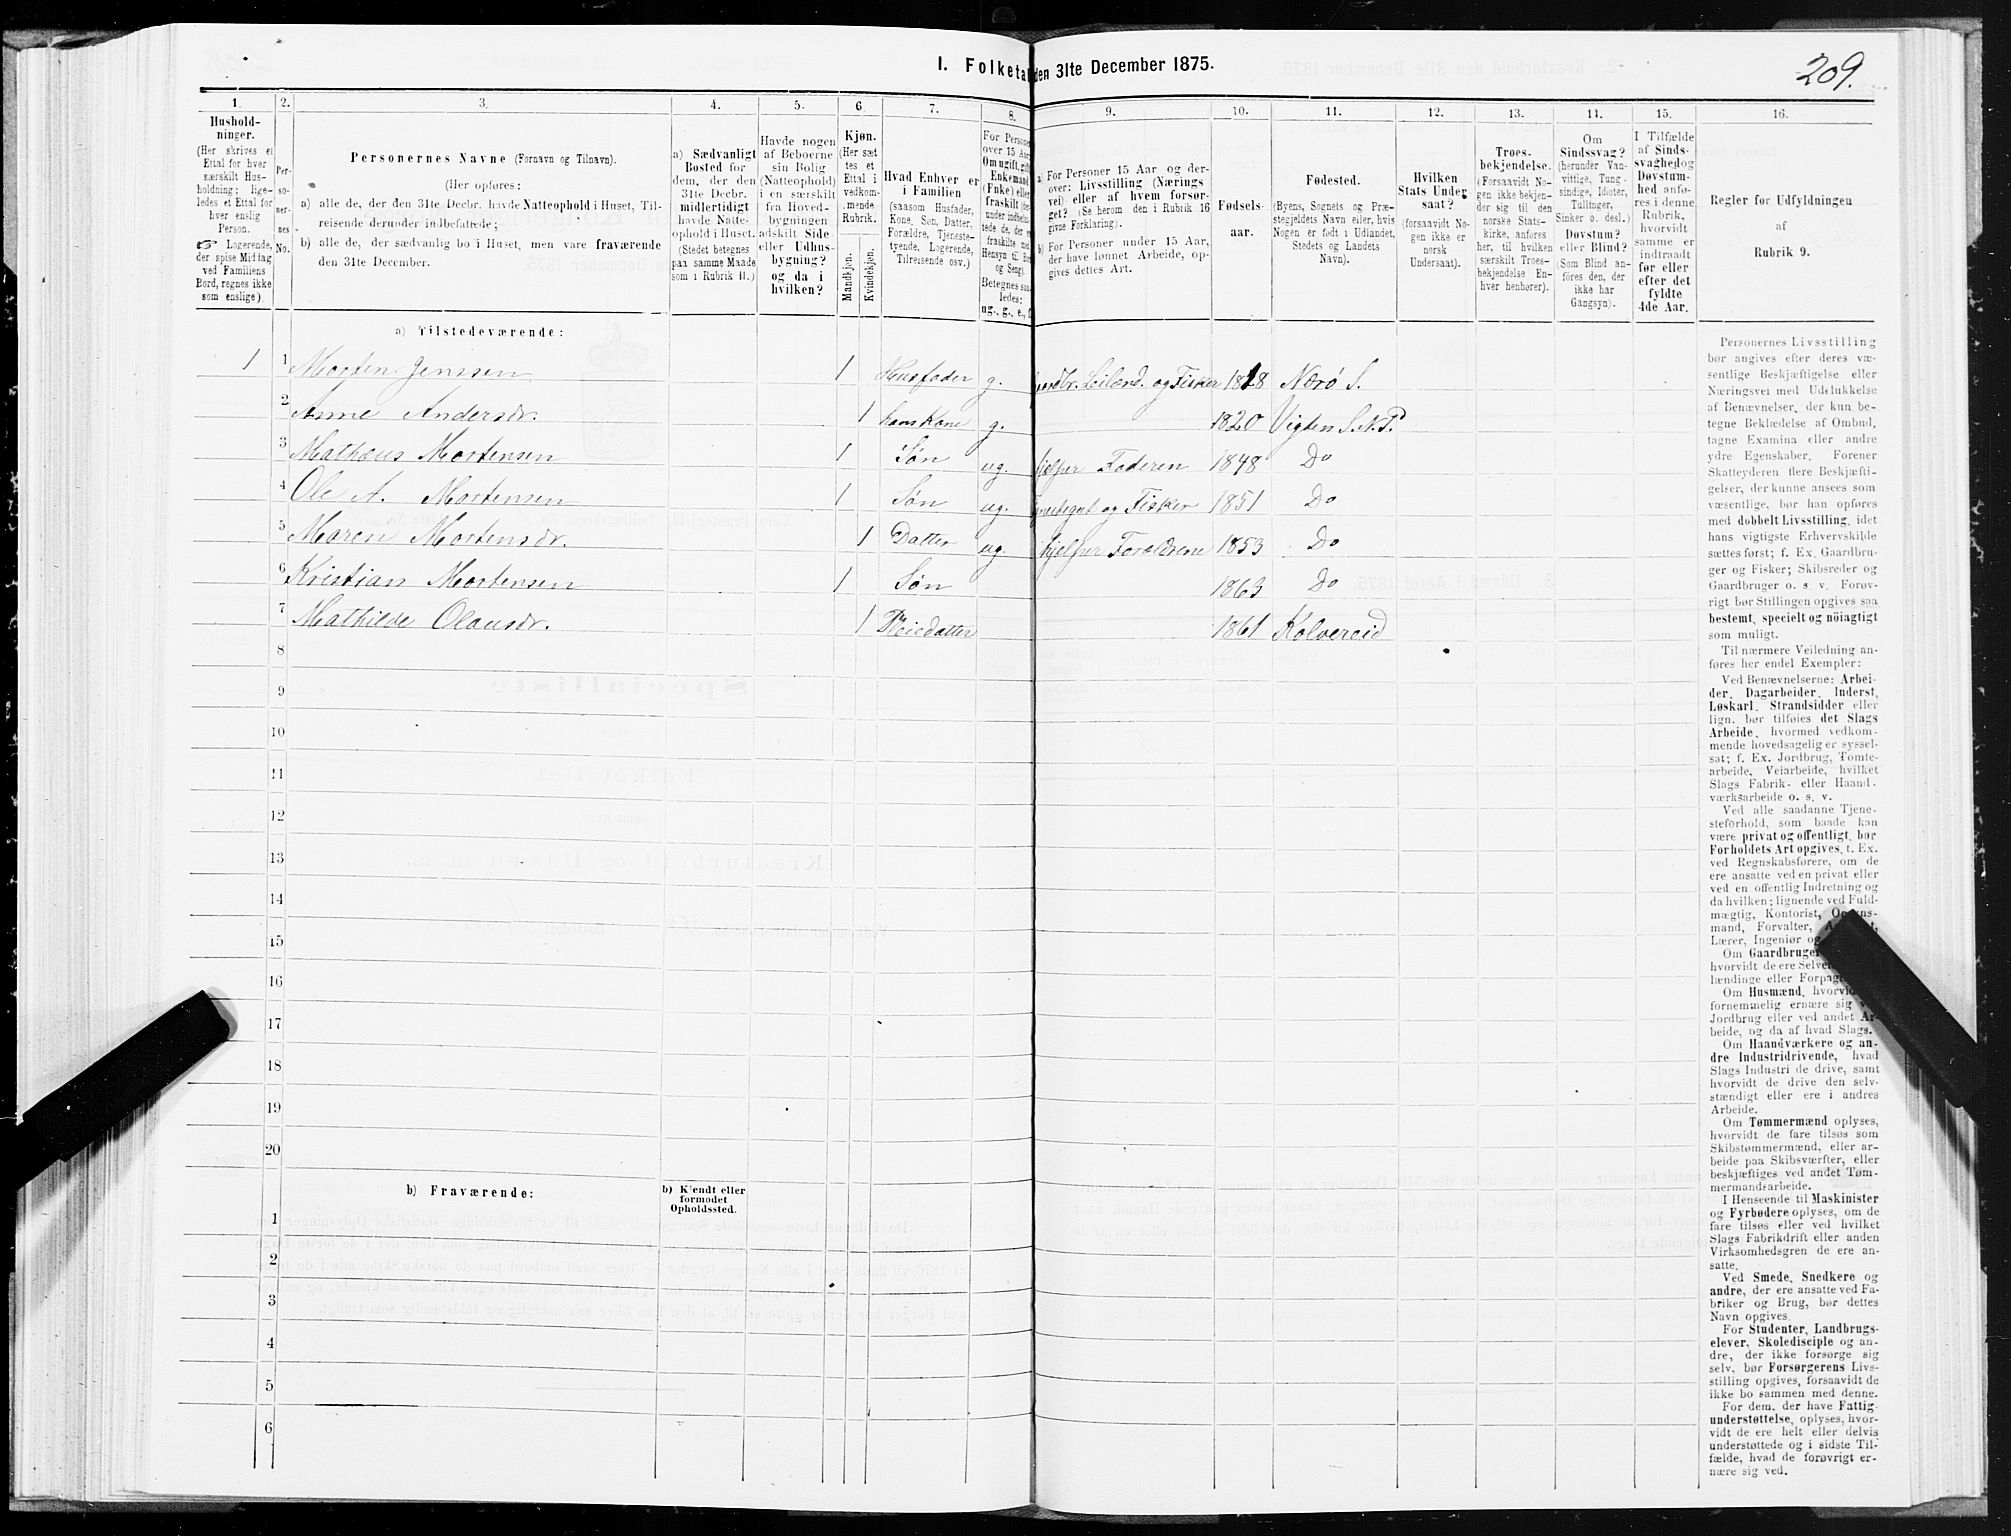 209.
I. Folketal den 31te December 1875.
1. 2. 3. 4. 5. 6. 7. 8. 9. 10. 11. 12. 13. 14. 15. 16.
Hushold-
ninger.
(Her skrives et
Ettal for hver
særskilt Hus-
holdning; lige-
ledes et Ettal for
hver enslig
Person.
☞ Logerende,
der spise Middag
ved Familiens
Bord, regnes ikke
som enslige).
Per-
so-
ner-
nes
No.
Personernes Navne (Fornavn og Tilnavn).
(Her opføres:
a) alle de, der den 31te Decbr. havde Natteophold i Huset, Til-
reisende derunder indbefattede;
b) alle de, der sædvanlig bo i Huset, men vare fraværende
den 31te December.
a) Sædvanligt
Bosted for
dem, der den
31te Decbr.
midlertidigt
havde Natte-
ophold i Huset.
(Stedet betegnes
paa samme Maade
som i Rubrik 11.)
Havde nogen
af Beboerne
sin Bolig
(Natteophold)
i en særskilt
fra Hoved-
bygningen
adskilt Side-
eller Udhus-
bygning?
og da i
hvilken?
Kjøn.
(Her sæt
tes et
Ettal i
vedkom-
mende
Rubrik.
Mandkjøn.
Kvindekjøn.
Hvad Enhver er
i Familien
(saasom Husfader,
Kone, Søn, Datter,
Forældre, Tjeneste-
tyende, Logerende,
Tilreisende osv.)
For Person
over 15 Aar
Om ugift, gift
Enkemand
(Enke) eller
fraskilt
Betegnes saa-
ledes:
ug., g., e., f.
a) For Personer 15 Aar og der-
over: Livsstilling (Nærings
vei) eller af hvem forsør-
get? (Se herom den i Rubrik 16
givne Forklaring).
b) For Personer under 15 Aar,
der have lønnet Arbeide, op-
gives dettes Art.
Fødsels-
aar.
Fødested.
(Byens, Sognets og Præ-
stegjeldets Navn eller, hvis
Nogen er født i Udlandet,
Stedets og Landets
Navn).
Hvilken
Stats Under-
saat?
(forsaavidt No-
gen ikke er
norsk
Undersaat).
Troes-
bekjendelse.
(Forsaavidt No-
gen ikke bekjen-
der sig til den
norske Stats-
kirke, anføres
her, til hvilken
særskilt Troes-
bekjendelse En-
hver henhører).
Om
Sindssvag?
(herunder Van-
vittige, Tung-
sindige, Idioter,
Tullinger,
Sinker o. desl.)
Døvstum?
eller Blind?
(Som Blind an-
føres den, der
ikke har
Gangsyn).
I Tilfælde
af Sinds-
svaghed og
Døvstum-
hed anfø-
res i denne
Rubrik,
hvorvidt
samme er
indtraadt
før eller
efter det
fyldte
4de Aar.
Regler for Udfyldningen
af
Rubrik 9.
a) Tilstedeværende:
1 1 Morten Jenssen 1 Husfader g. Jordbr. Leilænd. og Fisker 1818 Nærø S.
2 Anne Andersdr. 1 hans Kone g. 1820 Vigten S. N. P.
3 Mathæus Mortensen 1 Søn ug. hjelper Faderen 1848 Do
4 Ole A. Mortensen 1 Søn ug. og Fisker 1851 Do
5 Maren Mortensdr. 1 Datter ug. hjelper Forældrene 1853 Do
6 Kristian Mortensen 1 Søn 1863 Do
7 Mathilde Olausdr. 1 Pleiedatter 1861 Kolvereid
8
9
10
11
12
13
14
15
16
17
18
19
20
b) Fraværende:
b) Kjendt eller
formodet
Opholdssted.
1
2
3
4
5
6
Personernes Livsstilling
bør angives efter deres væ-
sentlige Beskjæftigelse eller
Næringsvei med Udelukkelse
af Benævnelser, der kun be-
tegne Beklædelse af Ombud,
tagne Examina eller andre
ydre Egenskaber. Forener
Skatteyderen flere Beskjæfti-
gelser, der kunne ansees som
væsentlige, bør han opføres
med dobbelt Livsstilling, idet
hans vigtigste Erhvervskilde
sættes først; f. Ex. Gaardbru-
ger og Fisker; Skibsreder og
Gaardbruger o. s. v. Forøv-
rigt bør Stillingen opgives saa
bestemt, specielt og nöiagtigt
som muligt.
Til nærmere Veiledning an-
føres her endel Exempler:
Ved Benævnelserne: Arbei-
der, Dagarbeider, Inderst,
Løskarl, Strandsidder eller
lign. bør tilføies det Slags
Arbeide, hvormed vedkom-
mende hovedsagelig er syssel-
sat; f. Ex. Jordbrug, Tomte-
arbeide, Veiarbeide, hvilket
Slags Fabrik- eller Haand-
værksarbeide o. s. v.
Ved alle saadanne Tjene-
steforhold, som baade kan
være privat og offentligt, bør
Forholdets Art opgives, f. Ex.
ved Regnskabsførere, om de
ere ansatte ved en privat eller
ved en offentlig Indretning og
da hvilken; lignende ved Fuld-
mægtig, Kontorist,
mand, Forvalter,
Lærer, Ingeniør og
Om Gaardbruger
hvorvidt de ere
lændinge eller
Om Husmænd,
fornemmelig ernære sig
Jordbrug eller ved andet Ar-
beide, og da af hvad Slags.
Om Haandværkere og an-
dre Industridrivende, hvad
Slags Industri de drive, samt
hvorvidt de drive den selv-
stændigt eller ere i andres
Arbeide.
Om Tømmermænd oplyses,
hvorvidt de fare tilsøs som
Skibstømmermænd, eller ar-
beide paa Skibsværfter, eller
beskjæftiges ved andet Tøm-
mermandsarbeide.
I Henseende til Maskinister
og Fyrbødere oplyses, om de
fare tilsøs eller ved hvilket
Slags Fabrikdrift eller anden
Virksomhedsgren de ere an-
satte.
Ved Smede, Snedkere og
andre, der ere ansatte ved Fa-
briker og Brug, bør dettes
Navn opgives.
For Studenter, Landbrugs-
elever, Skoledisciple og an-
dre, der ikke forsørge sig
selv, bør Forsørgerens Livs-
stilling opgives, forsaavidt de
ikke bo sammen med denne.
For dem, der have Fattig-
understøttelse, oplyses, hvor-
vidt de ere helt eller delvis
understøttede og i sidste Til-
fælde, hvad de forøvrigt er-
nære sig ved.